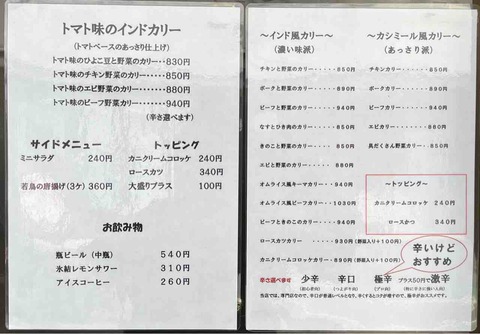 トマト味のインドカリー
(トマトベースのあっさり仕上げ)
トマト味のひよこ豆と野菜のカリー・・830円
トマト味のチキン野菜カリー・・・・850円
トマト味のエビ野菜のカリー・・・・880円
トマト味のビーフ野菜カリー・・・・940円
(辛さ選べます)
サイドメニュー
ミニサラダ 240円
若鳥の唐揚げ(3ケ) 360円
トッピング
カニクリームコロッケ 240円
ロースカツ 340円
大盛りプラス 100円
お飲み物
瓶ビール(中瓶) 540円
氷結レモンサワー 310円
アイスコーヒー 260円
～インド風カリー～
(濃い味派)
チキンと野菜のカリー・・・・・850円
ポークと野菜のカリー・・・・・890円
ビーフと野菜のカリー・・・・・940円
なすとひき肉のカリー・・・・・850円
きのこと野菜のカリー・・・・・850円
エビと野菜のカリー・・・・・880円
オムライス風キーマカリー・・・940円
オムライス風ビーフカリー・・・1030円
ビーフときのこのカリー・・・・940円
ロースカツカリー・・・・930円(野菜入り+100円)
カニクリームコロッケカリー・・890円(野菜入り+100円)
～カシミール風カリー～
(あっさり派)
チキンカリー・・・・・850円
ポークカリー・・・・・890円
ビーフカリー・・・・・940円
エビカリー・・・・・880円
具だくさん野菜カリー・・・850円
～トッピング～
カニクリームコロッケ 240円
ロースかつ 340円
辛いけど
おすすめ
辛さ選べます 少辛 辛口 極辛 プラス50円で激辛
(初心者向) (つよがり向) (プロ向)
当店では、専門店なので、辛口が普通レベルとなります。辛くするとコクが増すので、極辛がおススメです。